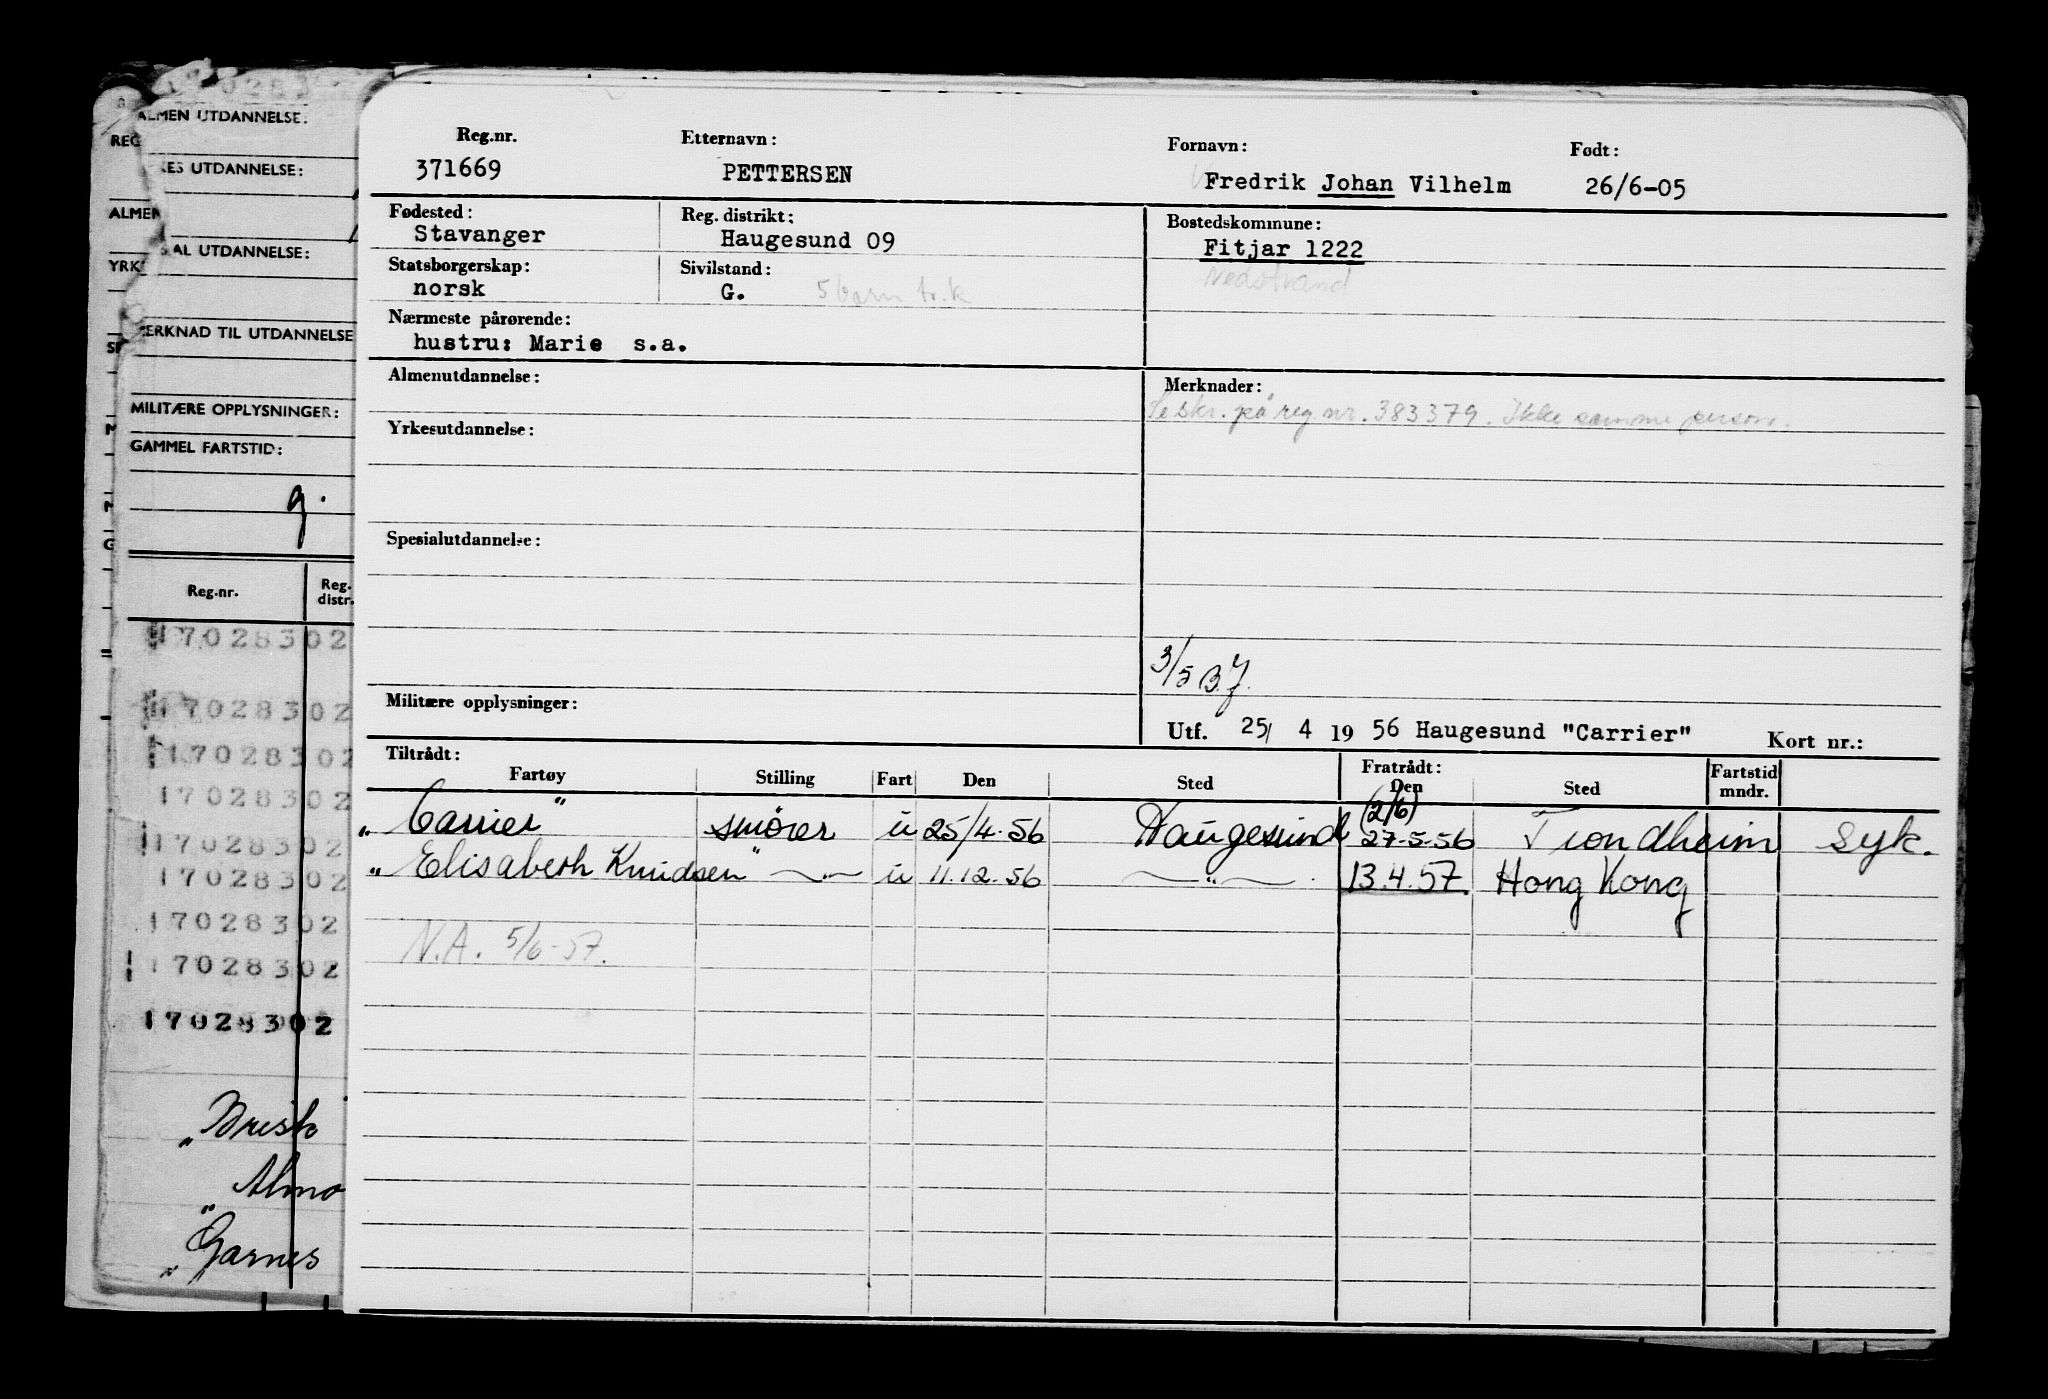 ALMEN UTDANNELSE:
REG
KES UTDANNELSE:
ALMEN
AL UTDANNELSE:
YRK
ERKNAD TIL UTDANNELSE
MILITÆRE OPPLYSNINGER:
GAMMEL FARTSTID:
g.
Reg.nr. Reg. distr.
17028302
17028302
17028302
17028302
17028302
17028302
17028302
17028302
17028302
"Brisk
"Almo
"Garnes
Reg.nr. Etternavn: Fornavn: Født:
371669 PETTERSEN Fredrik Johan Vilhelm 26/6-05
Fødested: Reg. distrikt: Bostedskommune:
Stavanger Haugesund 09 Fitjar 1222
Statsborgerskap: Sivilstand: Nedstrand
norsk G. 5 barn tr.k
Nærmeste pårørende:
hustru: Marie s.a.
Almenutdannelse: Merknader:
Se skr. på reg nr. 383379. Ikke samme person.
Yrkesutdannelse:
Spesialutdannelse:
3/5 B.J.
Militære opplysninger:
Utf. 25/ 4 19 56 Haugesund "Carrier" Kort nr.:
Tiltrådt: Fratrådt:
Fartøy Stilling Fart Den Sted Den Sted Fartstid mndr.
(2/6)
"Carrier" smører u 25/4.56 Haugesund 27.5.56 Trondheim syk.
"Elisabeth Knudsen" —"— u 11.12.56 —"— 13.4.57. Hong Kong
N.A. 5/6-57.